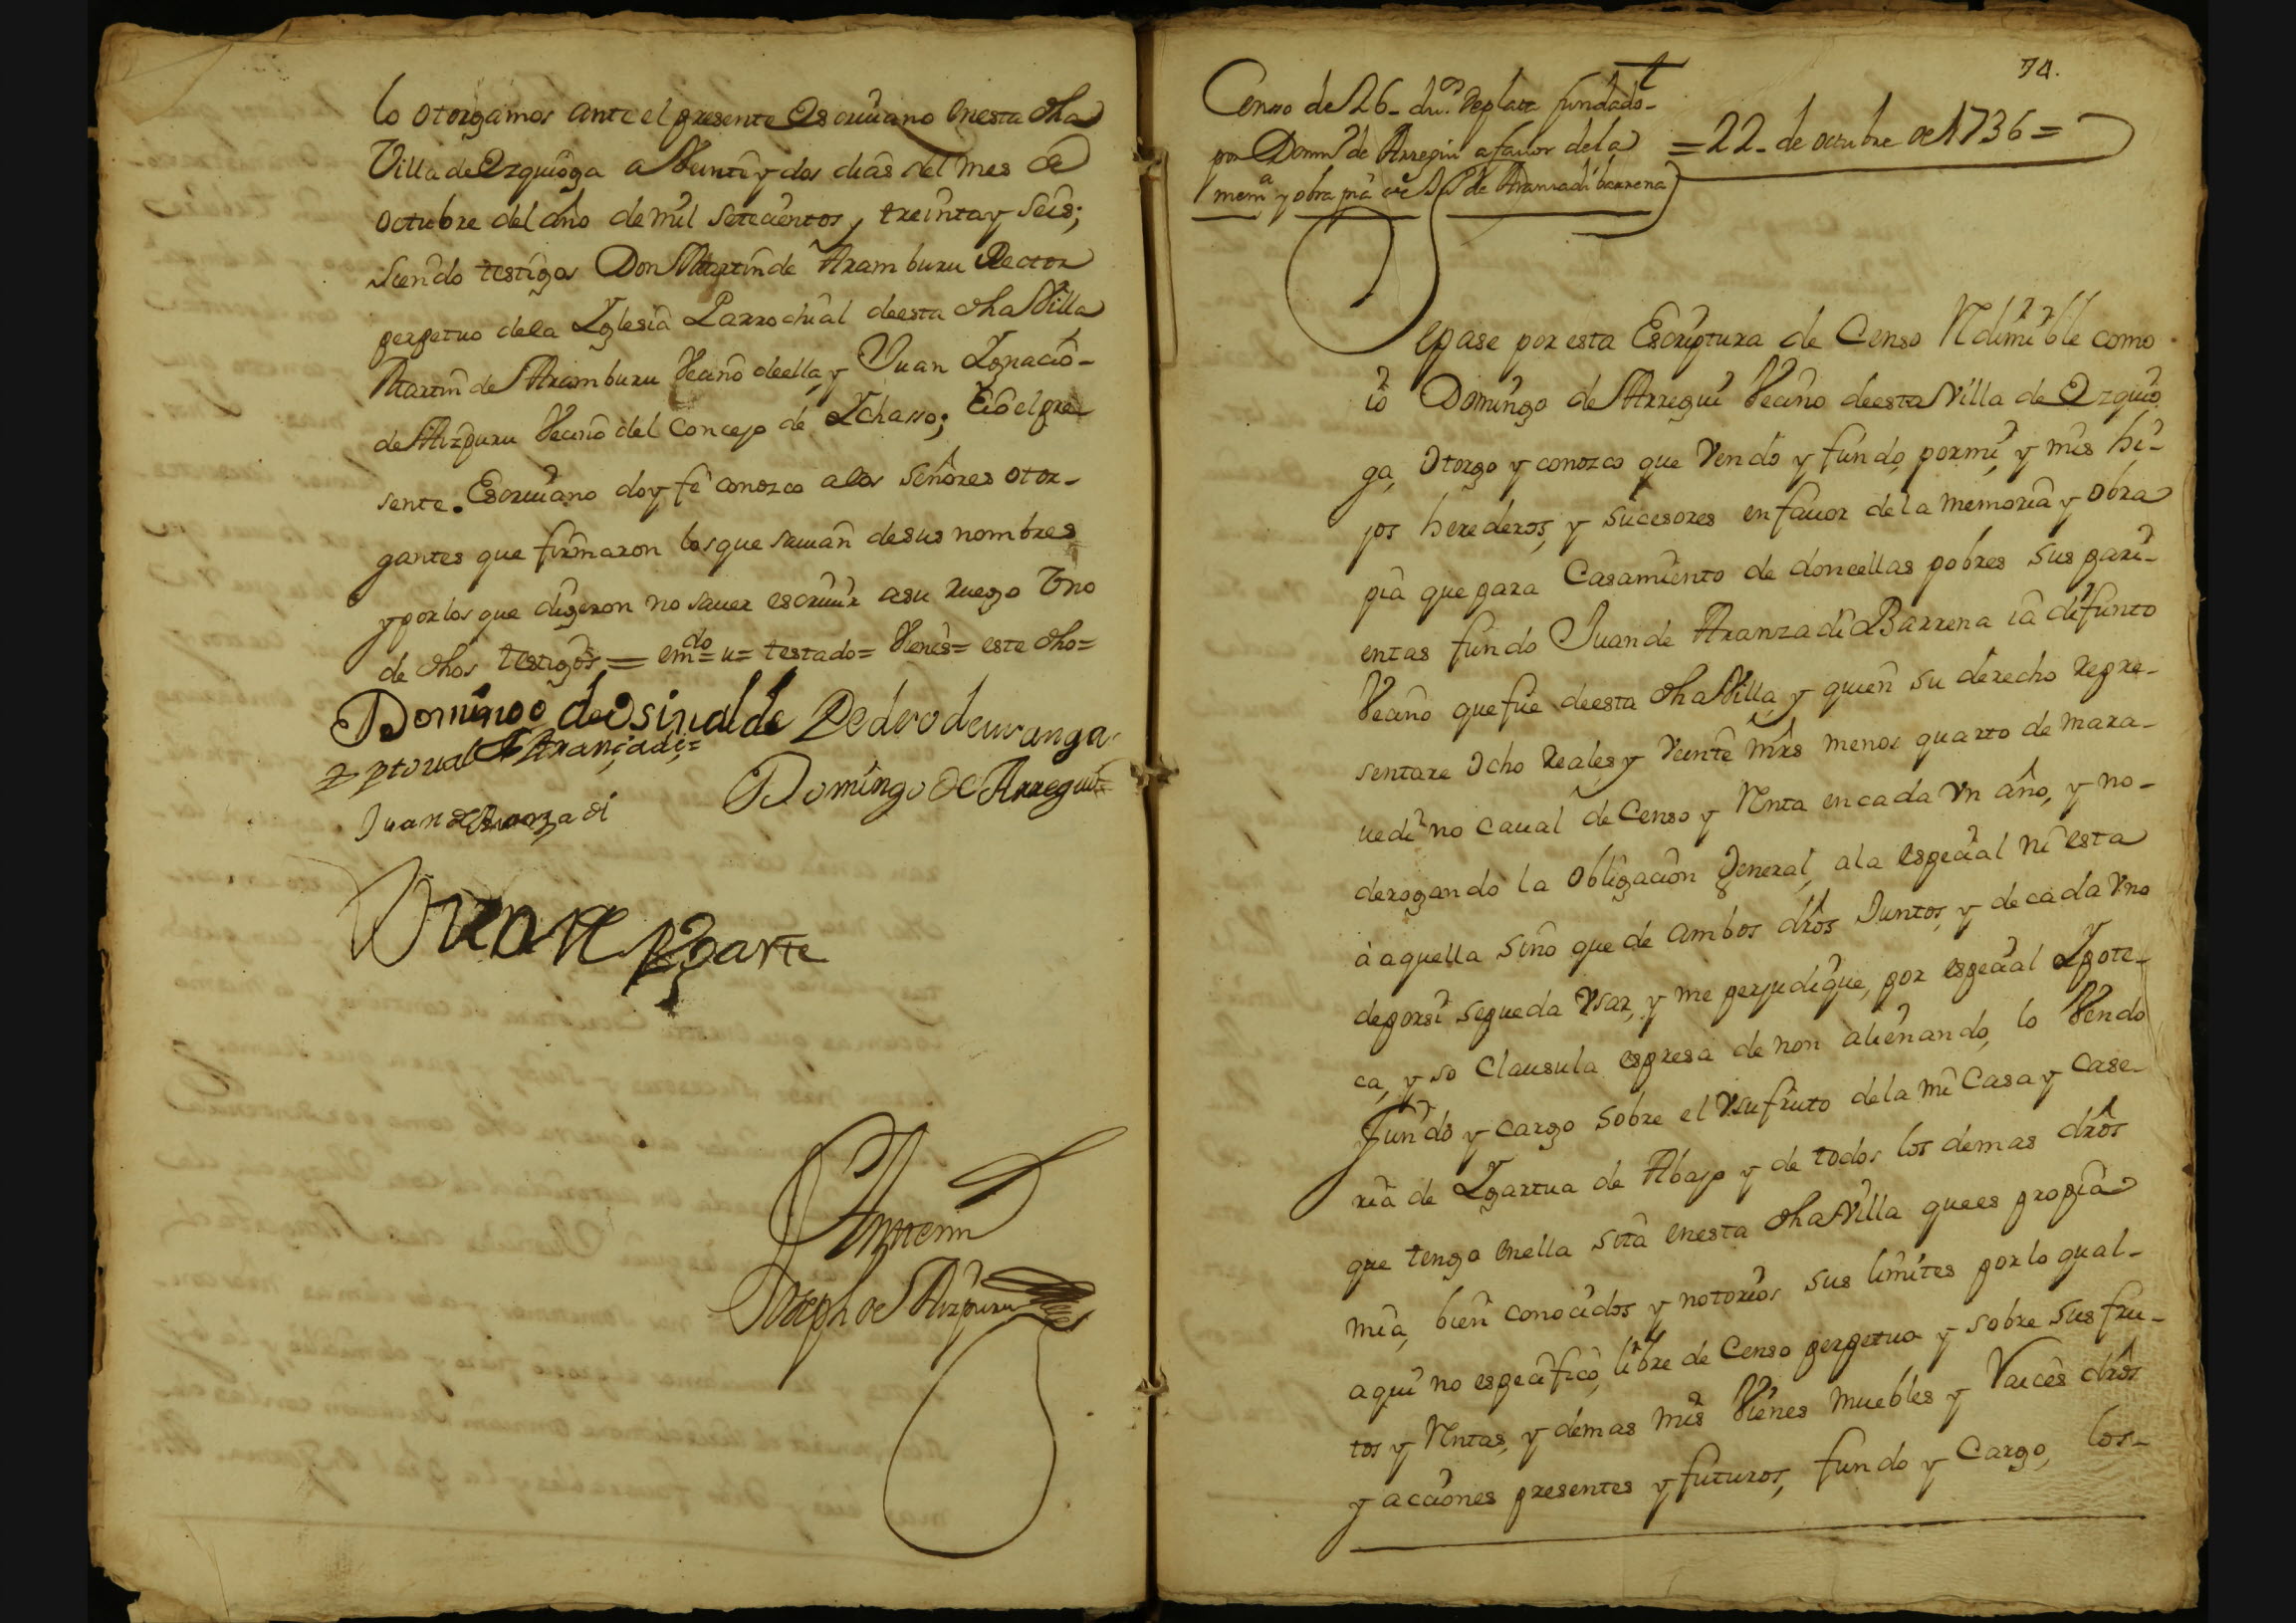 lo otorgamos ante el presente Escriuano enesta dha
Villa de Ezquioga a Veinte y dos dias del mes de
octubre del año de mil setecientos y treinta y seis;
siendo testigos Don Martin de Aramburu Rector
perpetuo dela Yglesia Parrochial deesta dha Villa
Martin de Aramburu Vecino deella, y Juan Ygnacio-
de Aizpuru Vecino del Concejo de Ychasso; Eio el pre-
sente. Escriuano doy fe conozco a los señores otor-
gantes que firmaron los que sauian desus nombres
y por los que digeron no sauer escriuir asu ruego Vno
de dhos testigos = em.do = u = testado = Vienes = este dho =
Domingo de Osinalde Pedro de uranga
Aranzadi =
Domingo de Arregui =
Juan de Aranzadi
Vicente Ygarte
Ante mi
Joseph de Aizpuru
74.
Censo de 26- du.os de plata fundado-
por Domin.o de Arregui a fauor dela
mem.a y obra pia de Ju.o de Aranzadibarrena
= 22- de octubre de 1736 =
Sepase por esta Escriptura de Censo Redimible como
io Domingo de Arregui Vecino deesta Villa de Ezquio
ga, Otorgo y conozco que Vendo y fundo, pormi, y mis hi-
jos herederos, y sucesores en fauor dela memoria y obra
pia que para Casamiento de doncellas pobres sus pari-
entas fundo Juan de Aranzadi Barrena ia difunto
Vecino que fue deesta dha Villa, y quien su derecho repre-
sentare Ocho Reales y Veinte mrs menos quarto de mara-
uedi no caual de Censo y Renta en cada Vn año, y no-
derogando la obligacion General, ala especial ni esta
à aquella sino que de ambos dros Juntos, y de cada Vno
deporsi sepueda Vsar, y me perjudique, por especial Ypote-
ca, y so Clausula espresa de non alienando, lo Vendo
fundo y cargo sobre el Vsufruto dela mi Casa y Case-
ria de Ygartua de Abajo y de todos los demas dros
que tengo enella sita enesta dha Villa quees propia
mia, bien conocidos y notorios sus limites por lo qual-
aqui no especifico, libre de Censo perpetuo y sobre sus fru-
tos y Rentas, y demas mis Vienes muebles y Raices dros
y acciones presentes y futuros, fundo y Cargo, los-